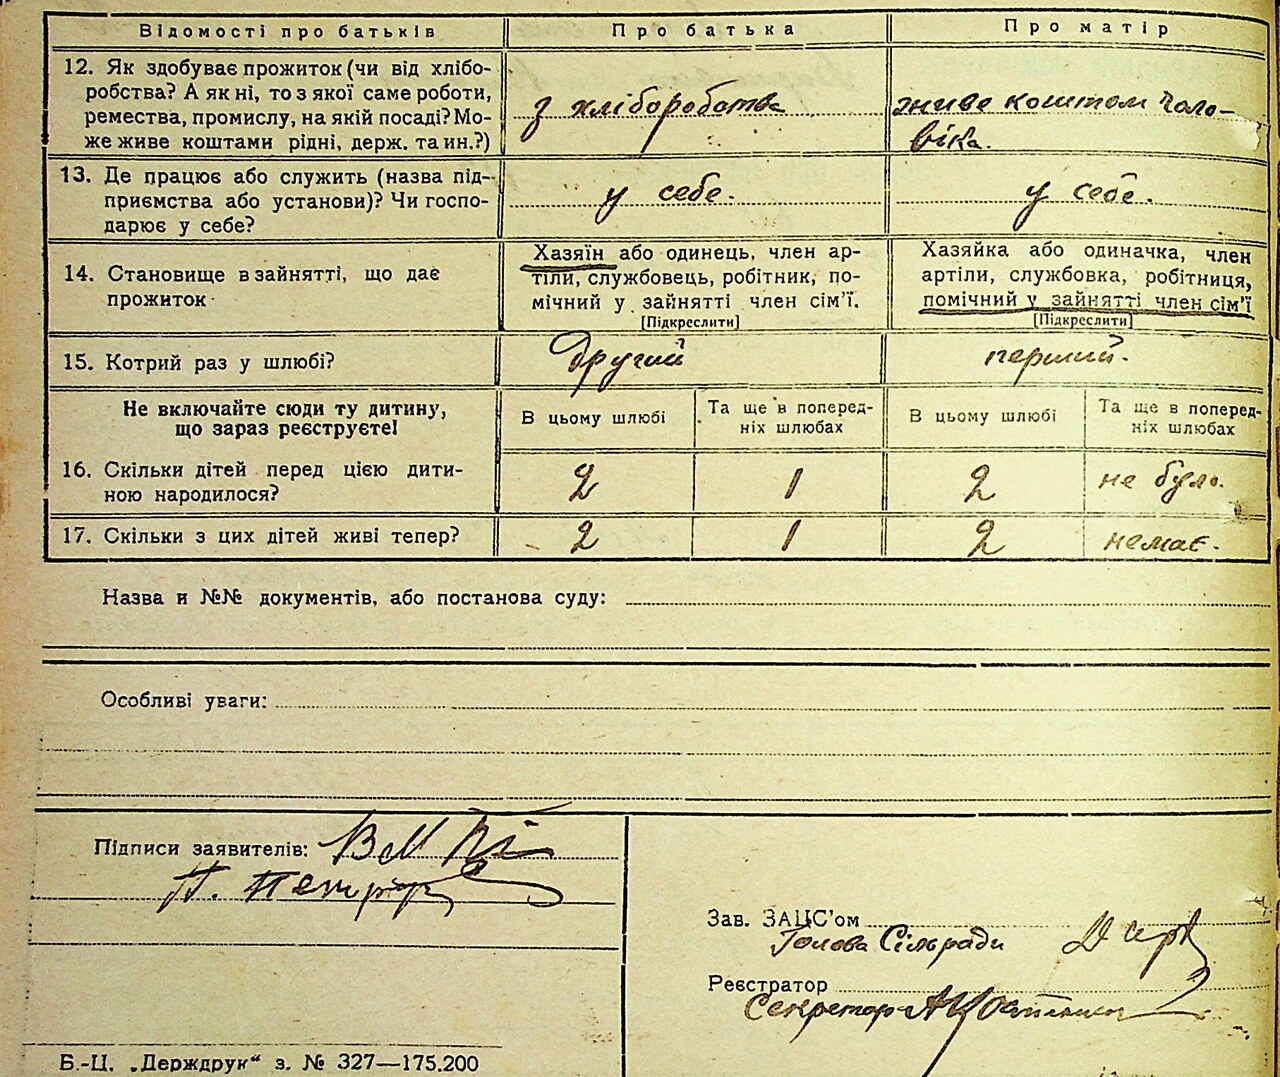 Відомості про батьків Про батька Про матір
12. Як здобуває прожиток (чи від хлібо-
робства? А як ні, то з якої саме роботи,
ремества, промислу, на якій посаді? Мо-
же живе коштами рідні, держ. та ин.?)
з хліборобства
живе коштом чоло-
віка.
13. Де працює або служить (назва під-
приємства або установи)? Чи госпо-
дарює у себе?
у себе.
у себе.
14. Становище в зайнятті, що дає
прожиток
Хазяїн або одинець, член ар-
тіли, службовець, робітник, по-
мічний у зайнятті член сім’ї.
[Підкреслити]
Хазяйка або одиначка, член
артіли, службовка, робітниця,
помічний у зайнятті член сім’ї
[Підкреслити]
15. Котрий раз у шлюбі?
другий
перший.
Не включайте сюди ту дитину,
що зараз реєструєте!
В цьому шлюбі
Та ще в поперед-
ніх шлюбах
В цьому шлюбі
Та ще в поперед-
ніх шлюбах
16. Скільки дітей перед цією дити-
ною народилося?
2 1 2 не було.
17. Скільки з цих дітей живі тепер?
2 1 2 немає.
Назва и №№ документів, або постанова суду:
Особливі уваги:
Підписи заявителів:
Зав. ЗАЦС’ом
Голова Сільради
Реєстратор
Секретар
Б.-Ц. „Держдрук“ з. № 327—175.200